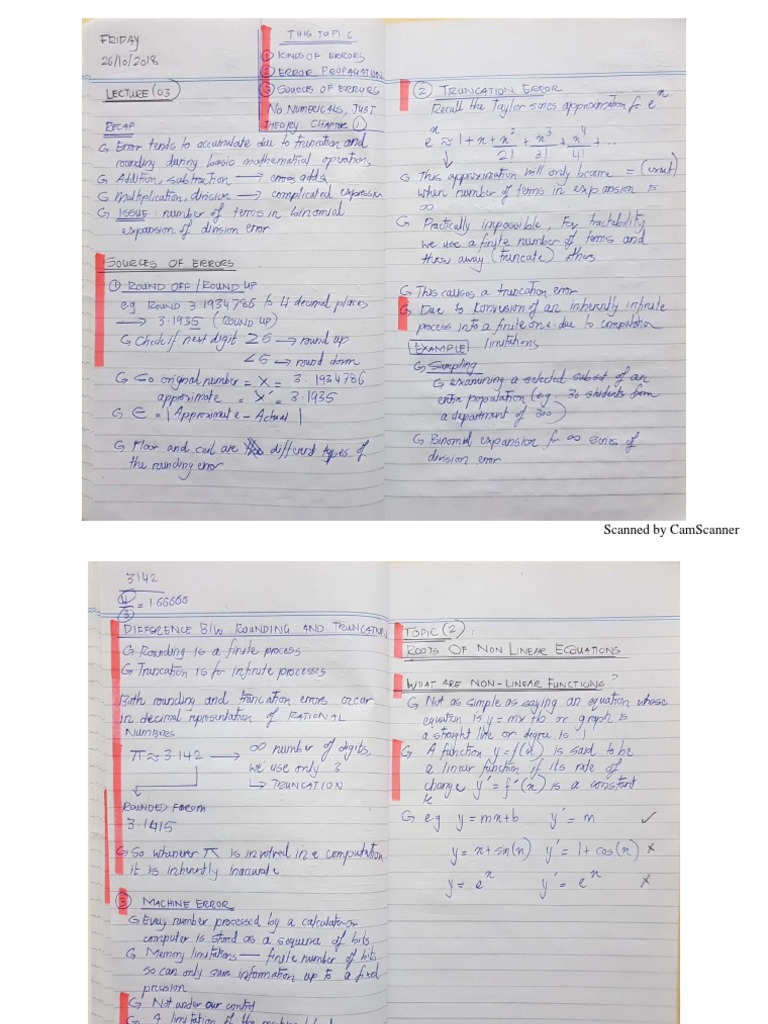 FRIDAY
26/10/2018
LECTURE (03)
THIS TOPIC
① KINDS OF ERRORS
② ERROR PROPAGATION
③ SOURCES OF ERRORS
NO NUMERICALS, JUST
THEORY CHAPTER ①
RECAP
G Error tends to accumulate due to truncation and
rounding during basic mathematical operations
G Addition, subtraction → error adds
G Multiplication, division → complicated expression
G ISSUE: number of terms in binomial
expansion of division error
SOURCES OF ERRORS
① ROUND OFF / ROUND UP
eg ROUND 3.1934786 to 4 decimal places
→ 3.1935 (ROUND UP)
G Check if next digit ≥5 → round up
<5 → round down
G So original number = X = 3.1934786
approximate = X' = 3.1935
G ∈ = | Approximate - Actual |
G Floor and ceil are different types of
the rounding error
② TRUNCATION ERROR
Recall the Taylor series approximation for e^x
e^x ≈ 1 + x + x²/2! + x³/3! + x⁴/4! + ...
G This approximation will only become = (exact)
when number of terms in expansion is
∞
G Practically impossible, For tractability
we use a finite number of terms and
throw away (truncate) others
G This causes a truncation error
G Due to conversion of an inherently infinite
process into a finite one due to computation
limitations
EXAMPLE
G Sampling
G examining a selected subset of an
entire population (eg 30 students from
a department of 300)
G Binomial expansion for ∞ series of
division error
Scanned by CamScanner
3142
4/3 = 1.66666
DIFFERENCE B/W ROUNDING AND TRUNCATION
G Rounding is a finite process
G Truncation is for infinite processes
Both rounding and truncation errors occur
in decimal representation of RATIONAL
NUMBERS
π ≈ 3.142 → ∞ number of digits,
we use only 3
↳ TRUNCATION
ROUNDED FORUM
3.1415
G So whenever π is involved in a computation
it is inherently inaccurate
③ MACHINE ERROR
G Every number processed by a calculator or
computer is stored as a sequence of bits
G Memory limitations — finite number of bits
so can only save information up to a fixed
precision
G Not under our control
G A limitation of the
TOPIC (2):
ROOTS OF NON LINEAR EQUATIONS
WHAT ARE NON-LINEAR FUNCTIONS?
G Not as simple as saying an equation whose
equation is y = mx + b or graph is
a straight line or degree is 1
G A function y = f(x) is said to be
a linear function if its rate of
change y' = f'(x) is a constant
k
G eg y = mx + b y' = m ✓
y = x + sin(x) y' = 1 + cos(x) ×
y = e^x y' = e^x ×